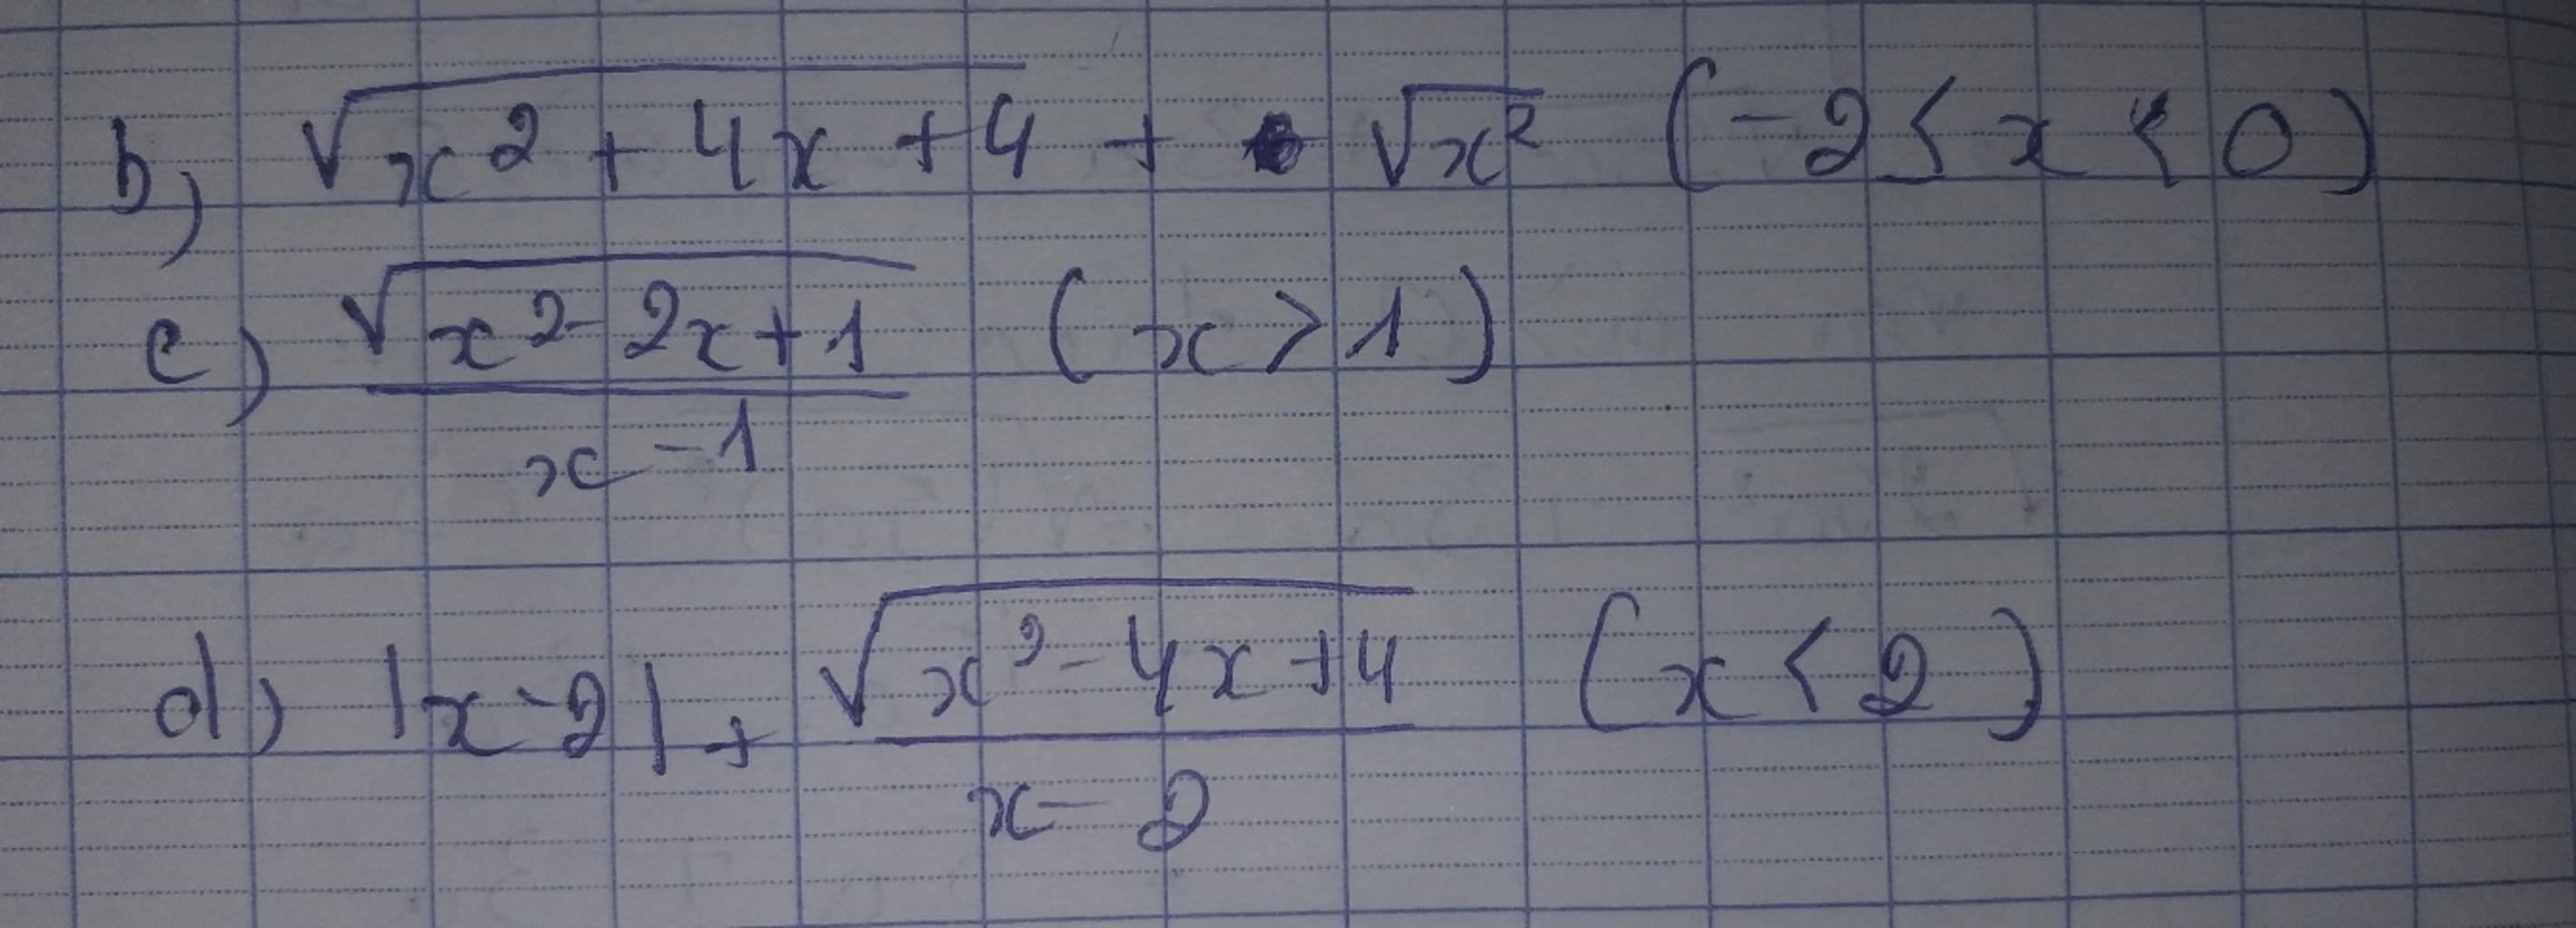 b) √(x² + 4x + 4) + √x² (-2 ≤ x < 0)
c) √(x² - 2x + 1) / (x - 1) (x > 1)
d) |x - 2| + √(x² - 4x + 4) / (x - 2) (x < 2)